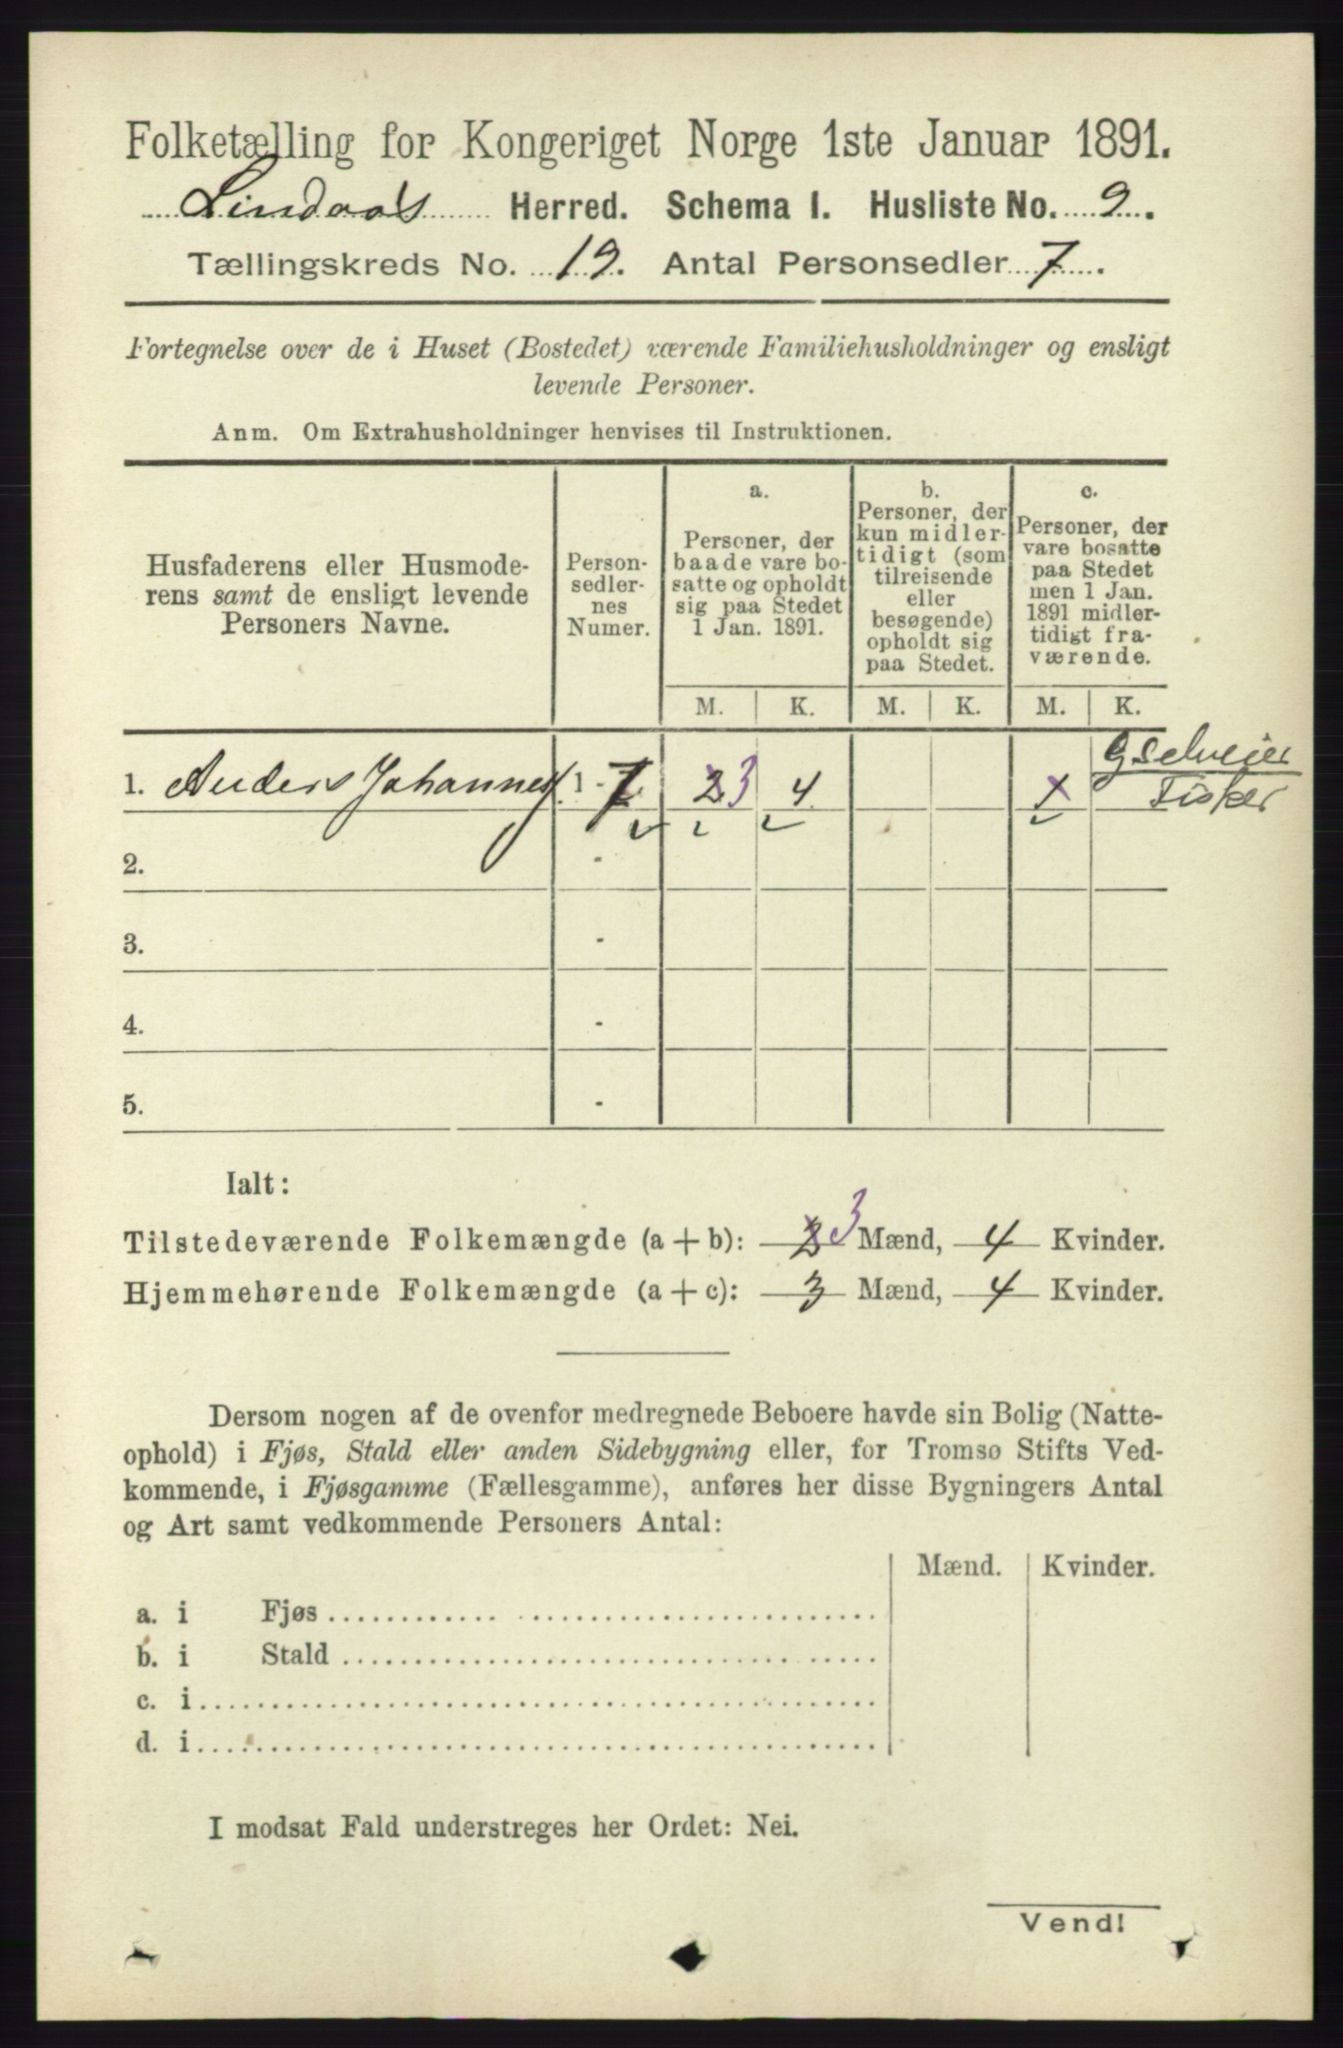 Folketælling for Kongeriget Norge 1ste Januar 1891.
Lindaas Herred. Schema I. Husliste No. 9.
Tællingskreds No. 19. Antal Personsedler 7.
Fortegnelse over de i Huset (Bostedet) værende Familiehusholdninger og ensligt
levende Personer.
Anm. Om Extrahusholdninger henvises til Instruktionen.
Husfaderens eller Husmode-
rens samt de ensligt levende
Personers Navne.
Person-
sedler-
nes
Numer.
a.
Personer, der
baade vare bo-
satte og opholdt
sig paa Stedet
1 Jan. 1891.
b.
Personer, der
kun midler-
tidigt (som
tilreisende
eller
besøgende)
opholdt sig
paa Stedet.
c.
Personer, der
vare bosatte
paa Stedet
men 1 Jan.
1891 midler-
tidigt fra-
værende.
M. K. M. K. M. K.
G Selveier
1. Anders Johannes 1 - 7 2 3 4 1 Fisker
2. -
3. -
4. -
5. -
Ialt:
Tilstedeværende Folkemængde (a + b): 2 3 Mænd, 4 Kvinder.
Hjemmehørende Folkemængde (a + c): 3 Mænd, 4 Kvinder.
Dersom nogen af de ovenfor medregnede Beboere havde sin Bolig (Natte-
ophold) i Fjøs, Stald eller anden Sidebygning eller, for Tromsø Stifts Ved-
kommende, i Fjøsgamme (Fællesgamme), anføres her disse Bygningers Antal
og Art samt vedkommende Personers Antal:
Mænd. Kvinder.
a. i Fjøs
b. i Stald
c. i
d. i
I modsat Fald understreges her Ordet: Nei.
Vend!